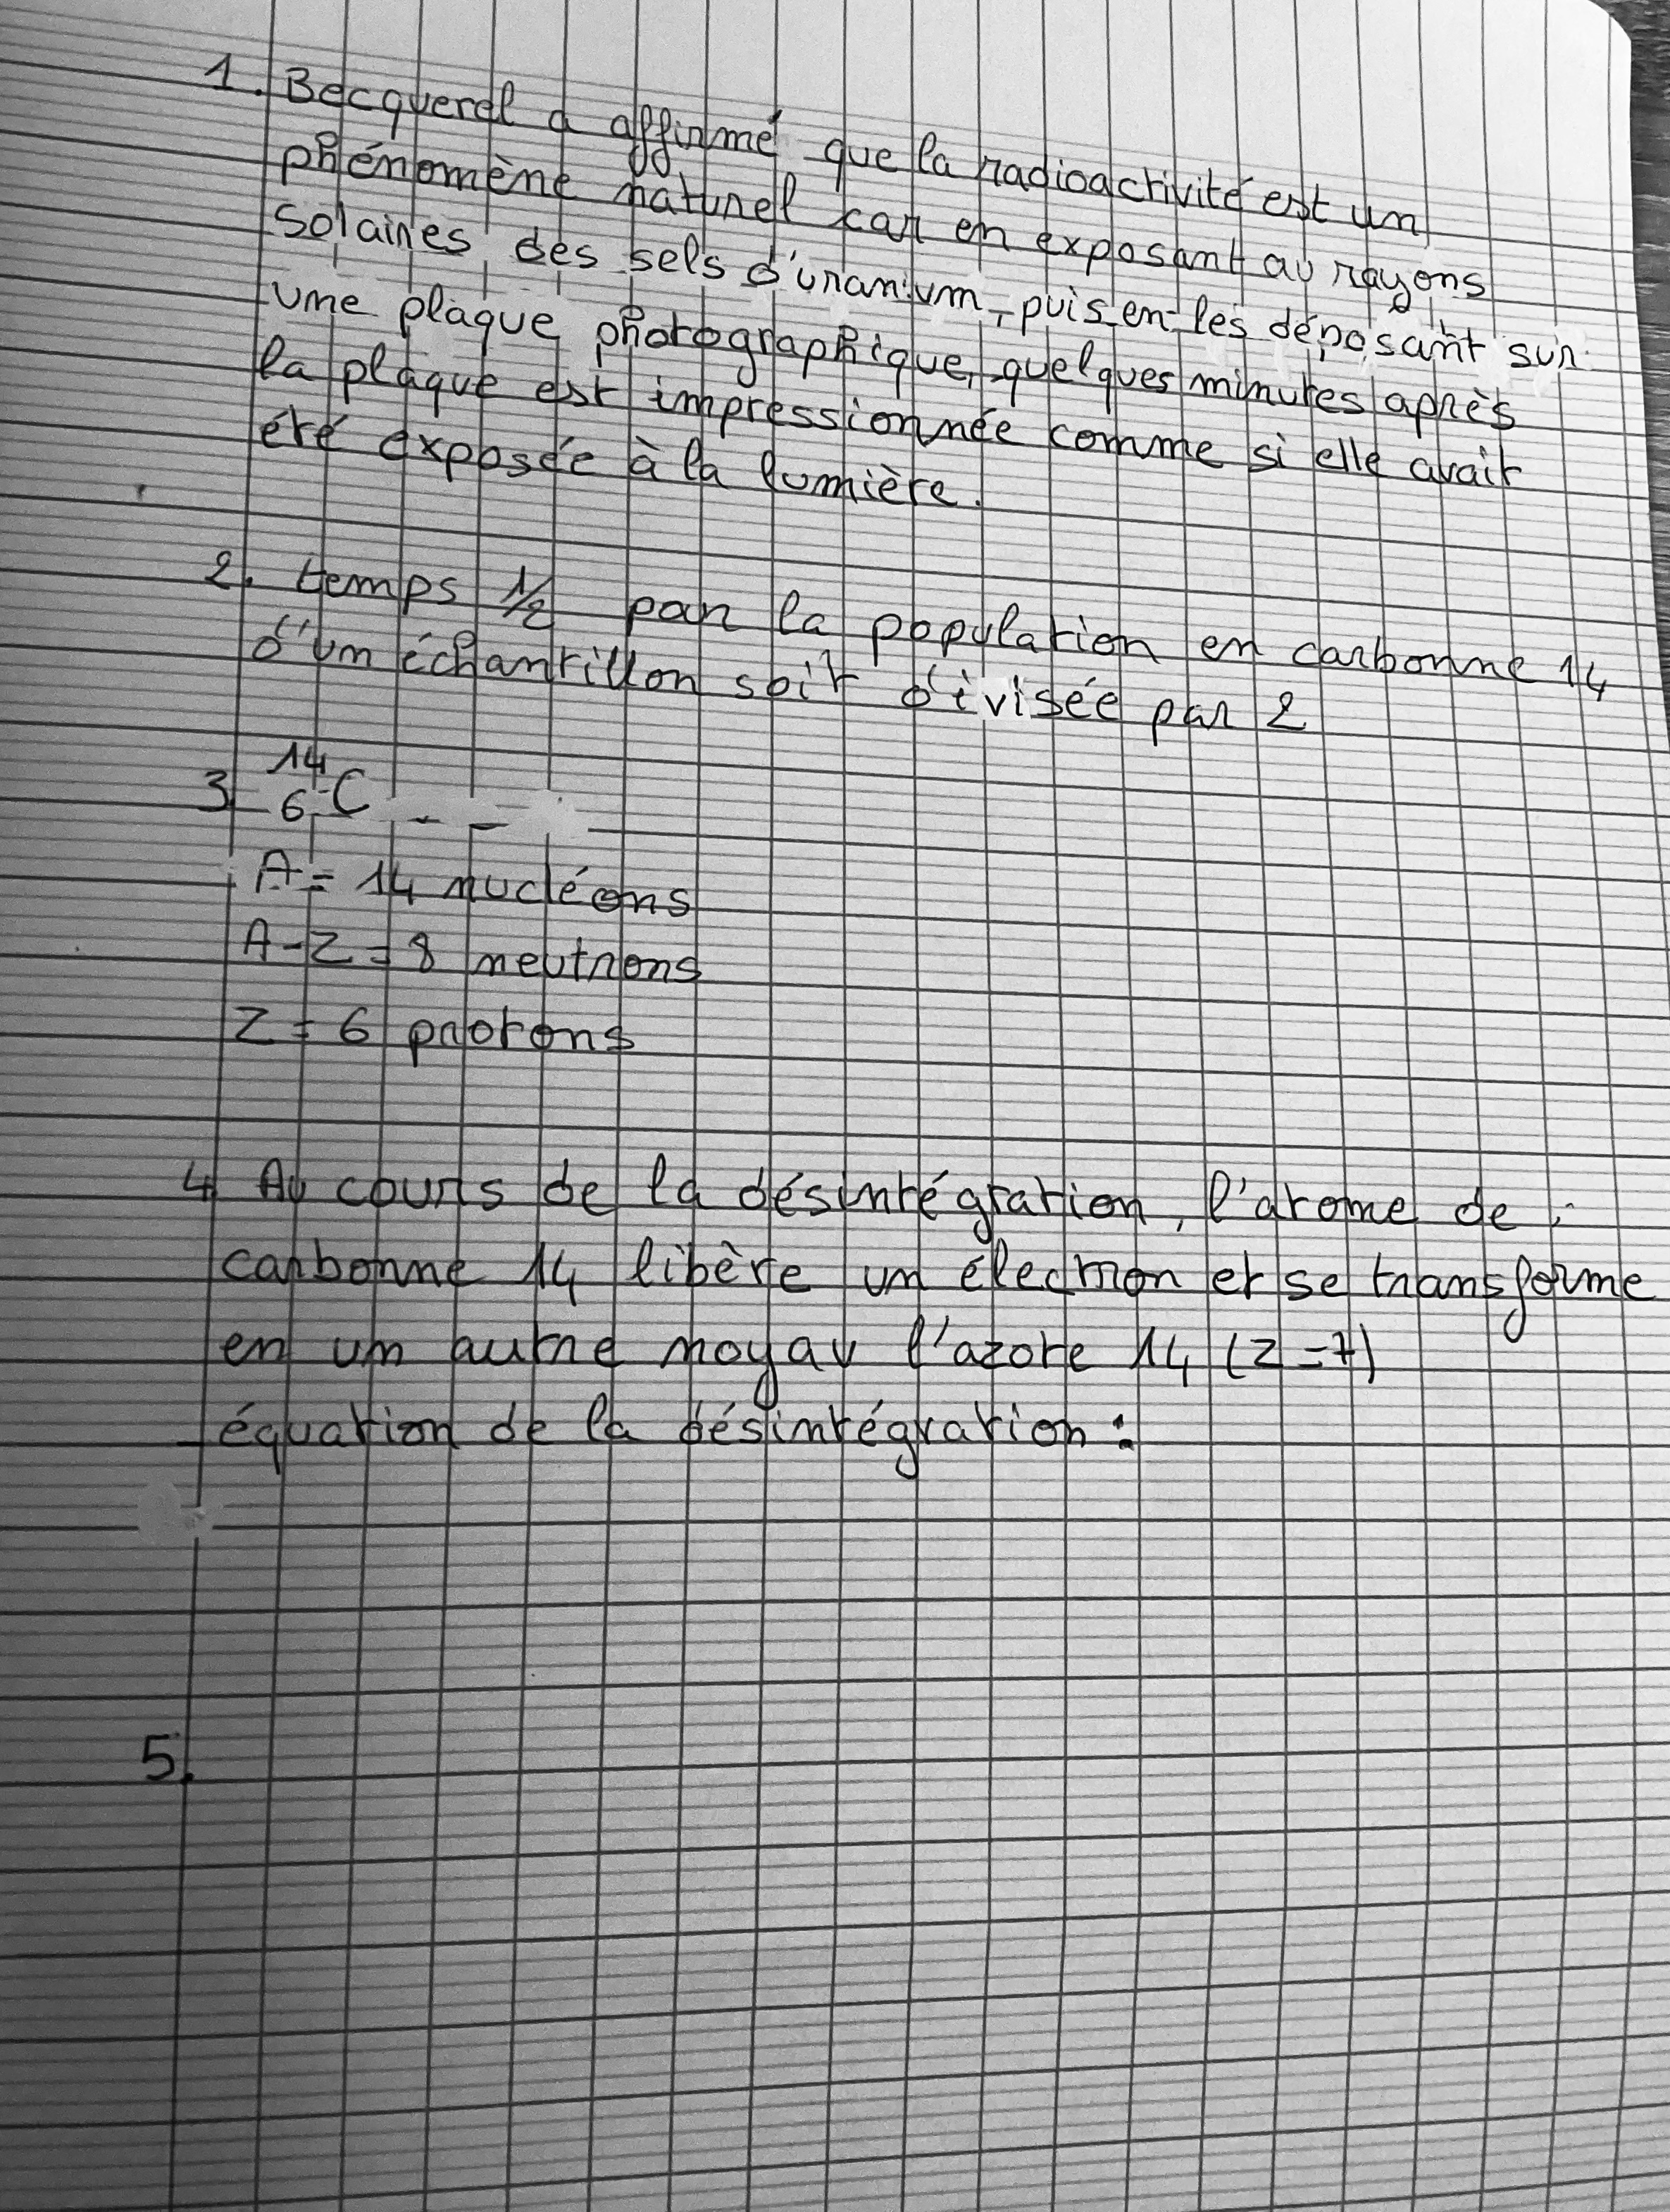 1. Becquerel a affirmé que la radioactivité est un
phénomène naturel car en exposant au rayons
solaires des sels d'uranium, puis en les déposant sur
une plaque photographique, quelques minutes après
la plaque est impressionnée comme si elle avait
été exposée à la lumière.
2. temps 1/2 par la population en carbonne 14
d'un échantillon soit divisée par 2
3 14 6 C - -
A = 14 nucléons
A-Z = 8 neutrons
Z = 6 protons
4 Au cours de la désintégration, l'atome de
carbonne 14 libère un électron et se transforme
en un autre noyau l'azote 14 (Z=7)
équation de la désintégration :
5.